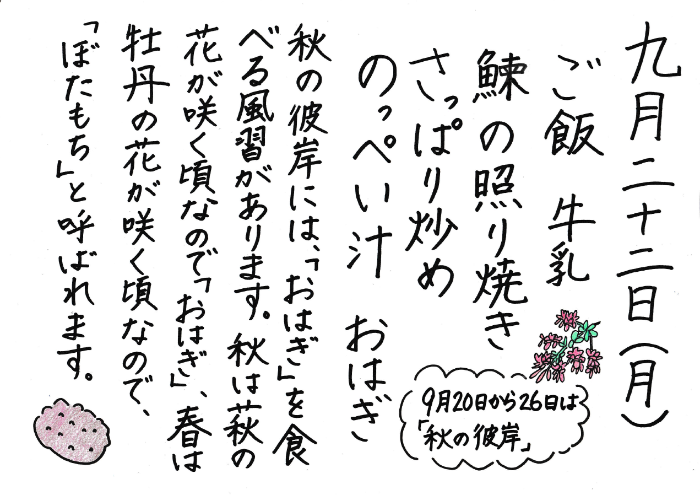 九月二十二日(月)
ご飯 牛乳
鰊の照り焼き
さっぱり炒め
のっぺい汁 おはぎ
9月20日から26日は
「秋の彼岸」
秋の彼岸には、「おはぎ」を食
べる風習があります。秋は萩の
花が咲く頃なので「おはぎ」、春は
牡丹の花が咲く頃なので、
「ぼたもち」と呼ばれます。